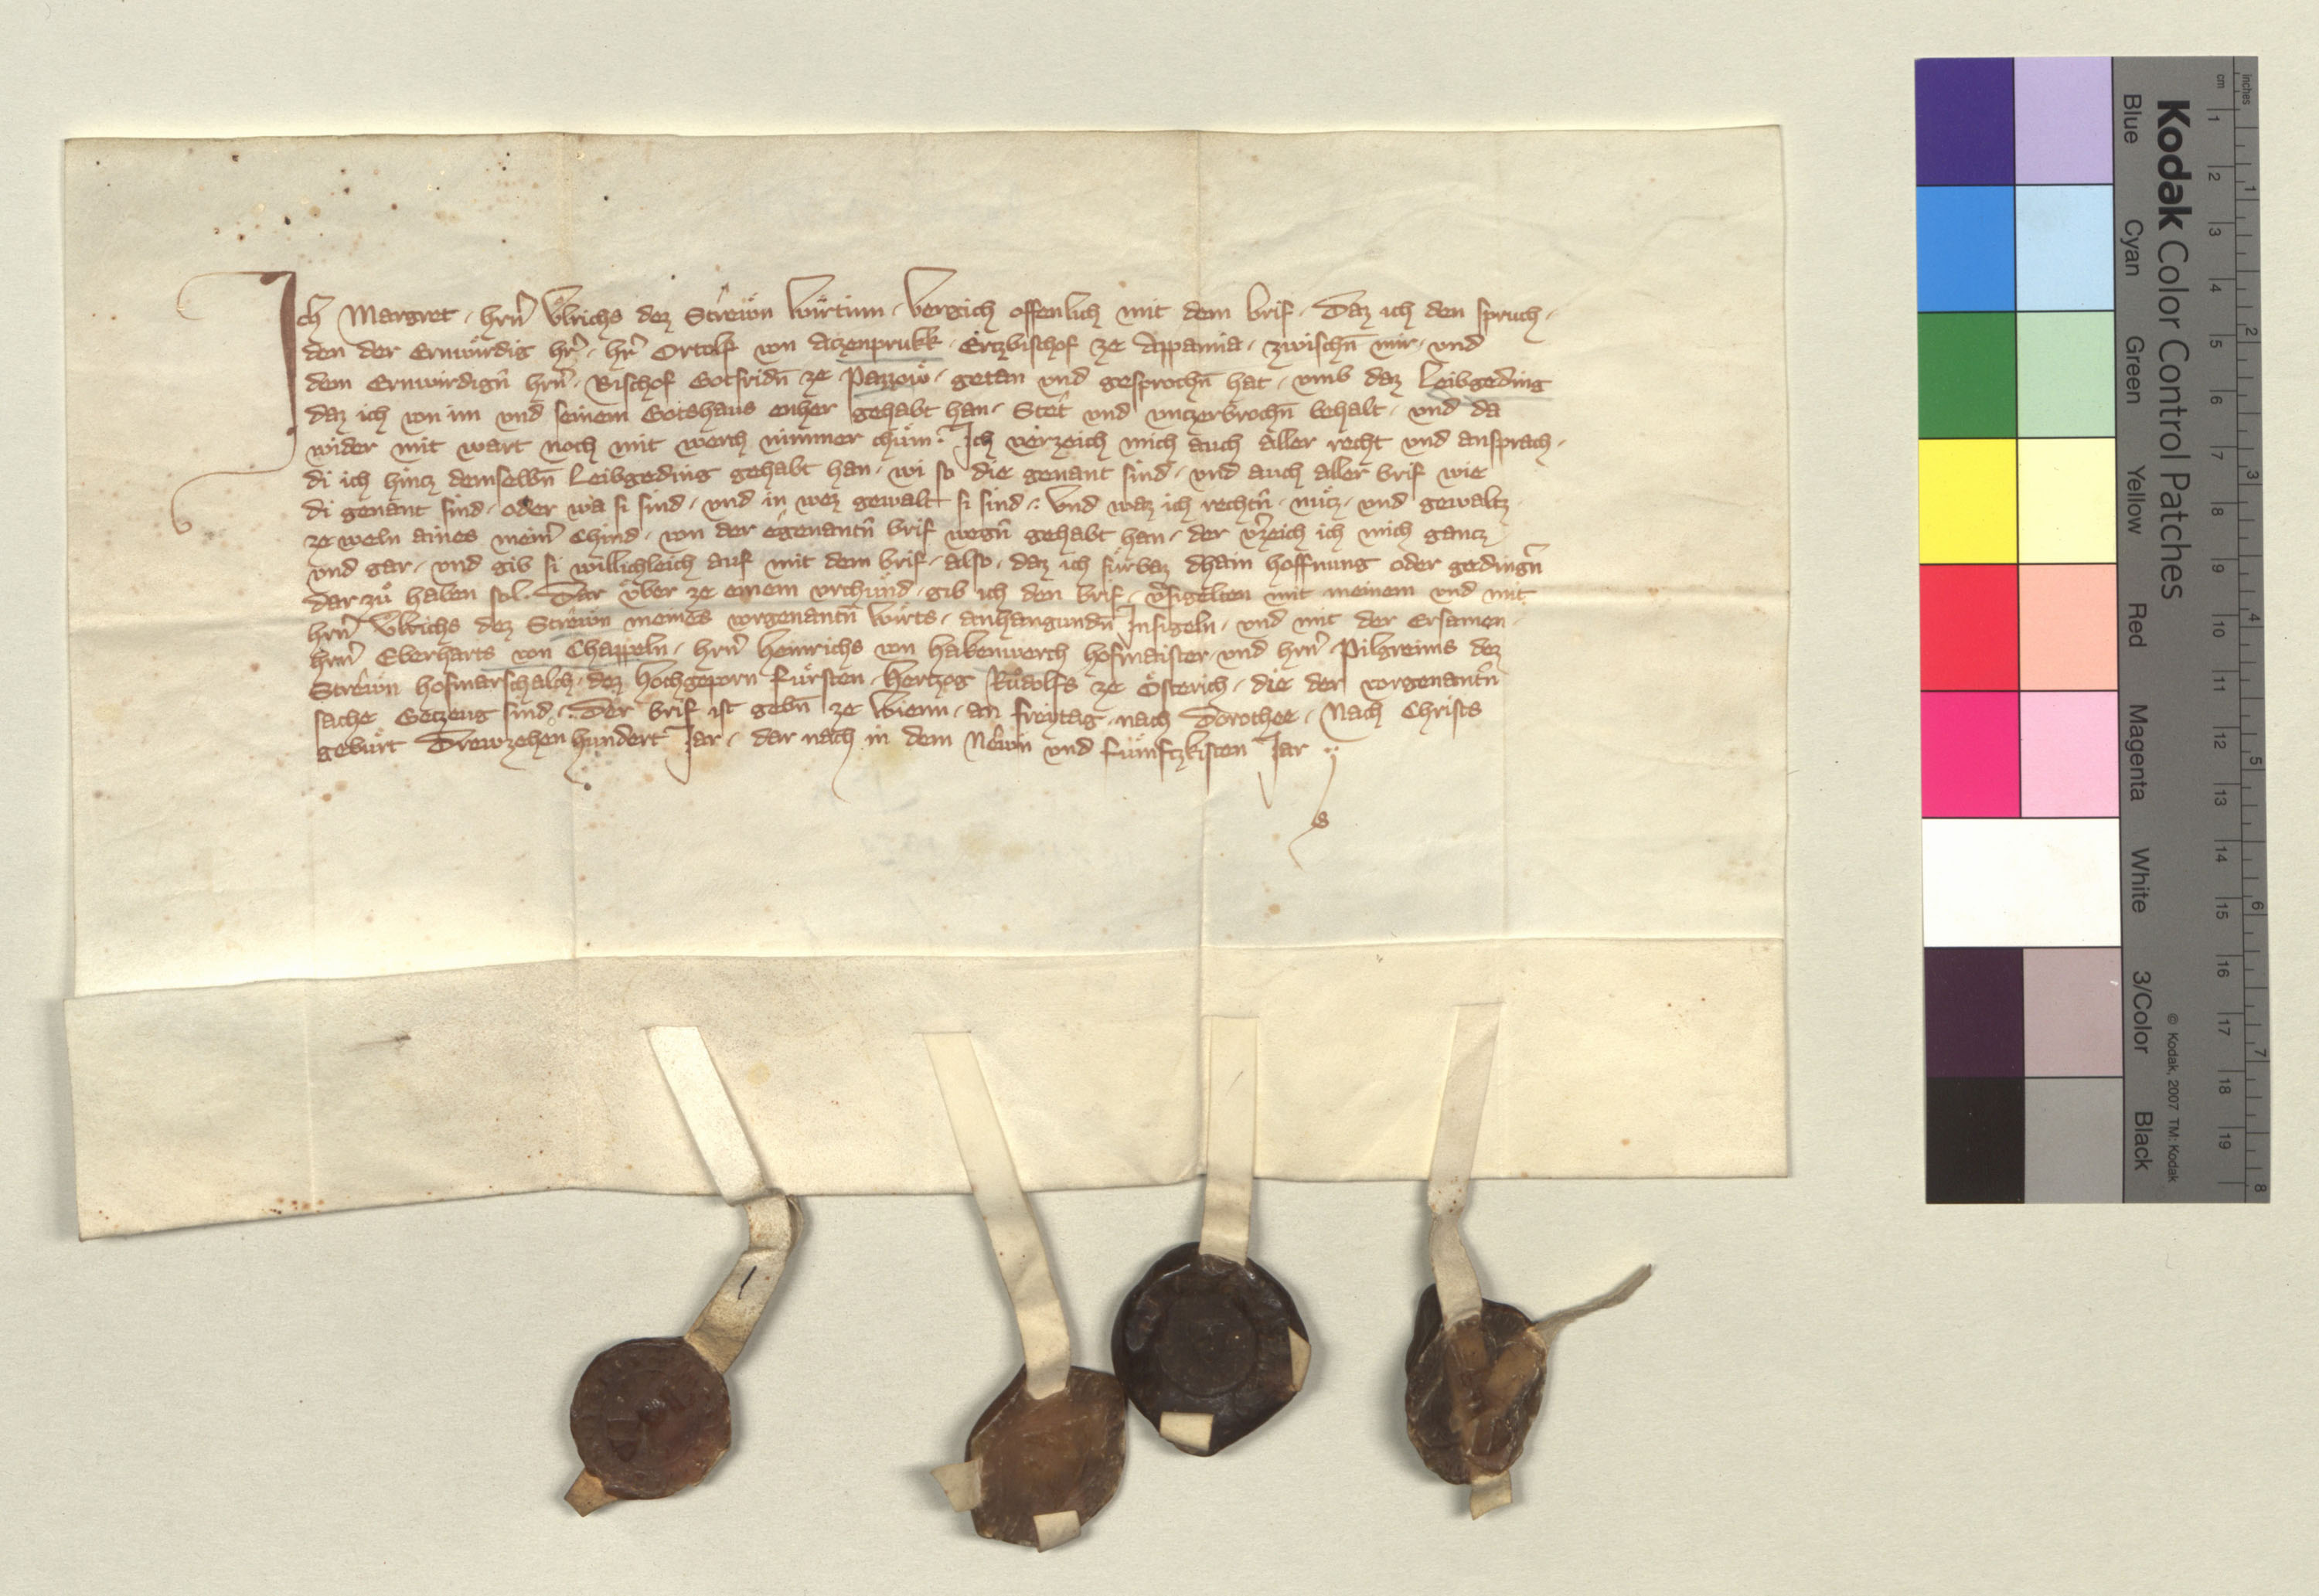 Ich Margret · hrn̄ Ůlrichs dez Strewͤn Wuͤrtinn · Vergich offenlich mit dem brif · Daz ich den spruch ·
den der Ernwuͤrdig hr̄ · hr̄ Ortolf von Atzenprukk · Ertzbischof ze Appamia · zwischn̄ mir · vnd
dem Ernwirdign̄ hrn̄ · Bischof Gotfridn̄ ze Pazzowͤ · getan vnd gesprochn̄ hat · vmb daz Leibgeding
daz ich von im vnd seinem Gotshaus enher gehabt han · Stet vnd vntzerbrochn̄ behalt · vnd da
wider mit wart noch mit werch nimmer chuͤm · Ich verzeich mich auch aller recht vnd ansprach ·
di ich hintz demselbn̄ Leibgeding gehabt han · wi so die genant sind · vnd auch aller brif wie
di genant sind · oder wa si sind · vnd in wez gewalt si sind · Vnd waz ich rechtn̄ · nuͤtz · vnd gewaltz
ze weln aines meinr̄ Chind · von der egenantn̄ brif wegn̄ gehabt han · der v̄rzeich ich mich gantz
vnd gar · vnd gib si willichleich auf mit dem brif · also · daz ich fuͤrbaz dhain hoffnung oder gedingn̄
dar zuͤ haben sol · Dar vͤber ze einem vrchuͤnd · gib ich den brif · v̄rsigelten mit meinem vnd mit
hrn̄ Ůlrichs dez Strewͤn meines vorgenantn̄ Wirts · anhangundn̄ Insigeln · vnd mit der Ersamen
hrn̄ Eberharts von Chappeln · hrn̄ Heinrichs von Hakenwerch Hofmaister · vnd hrn̄ Pilgreims dez
Strewͤn hofmarschalch · dez hochgeporn Fuͤrsten · Hertzog Ruͤdolfs ze Oͤsterich · die der vorgenantn̄
sache Getzeug sind · Der brif ist gebn̄ ze Wienn · an freytag · nach Dorothee · Nach Christs
gebuͤrt Drewzehen hundert Jar · dar nach in dem Newͤn vnd fuͤnftzkisten Jar
Kodak Color Control Patches
Blue Cyan Green Yellow Red Magenta White 3/Color Black
© Kodak, 2007 TM: Kodak
cm 1 2 3 4 5 6 7 8 9 10 11 12 13 14 15 16 17 18 19
inches 1 2 3 4 5 6 7 8